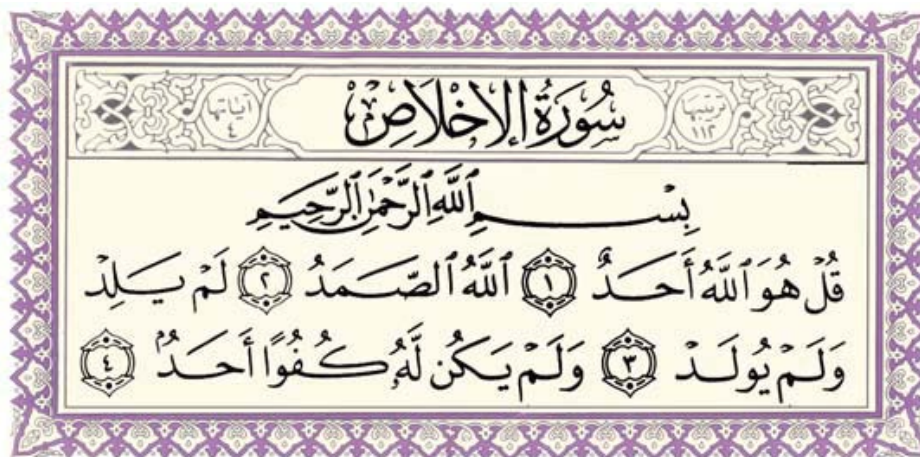 ترتيبها ١١٢ سُورَةُ الإِخْلَاصِ آياتها ٤
بِسْمِ ٱللَّهِ ٱلرَّحْمَٰنِ ٱلرَّحِيمِ
قُلْ هُوَ ٱللَّهُ أَحَدٌ ١ ٱللَّهُ ٱلصَّمَدُ ٢ لَمْ يَلِدْ
وَلَمْ يُولَدْ ٣ وَلَمْ يَكُن لَّهُۥ كُفُوًا أَحَدٌۢ ٤